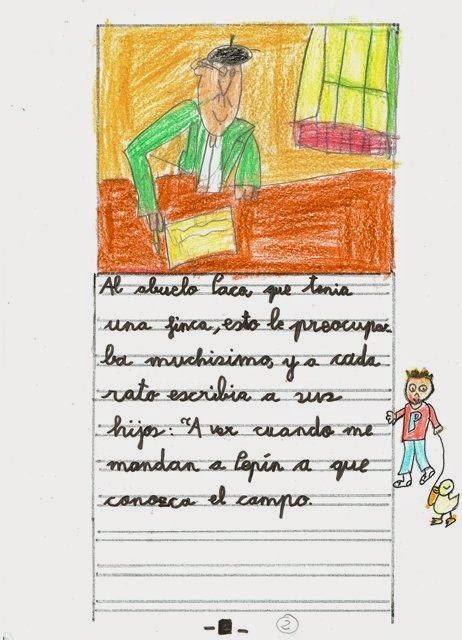 Al abuelo Paca que tenia
una finca, esto le preocupa-
ba muchisimo, y a cada
rato escribia a sus
hijos: "A ver cuando me
mandan a Pepín a que
conozca el campo.
P
2